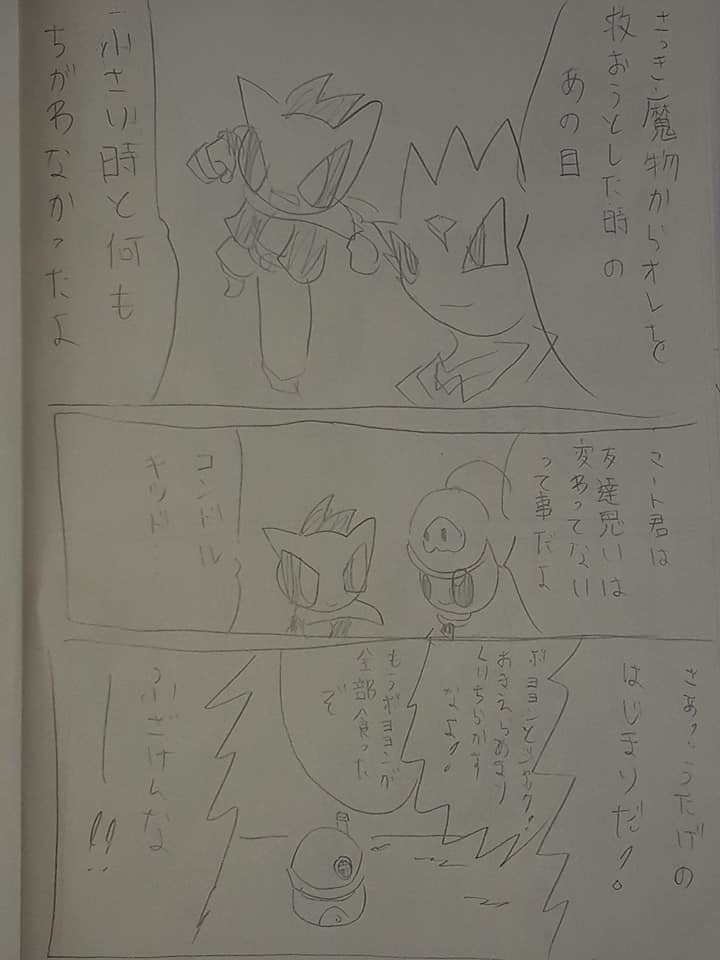 さっき魔物からオレを
救おうとした時の
あの目
小さい時と何も
ちがわなかったよ
マート君は
友達思いは
変わってない
って事だよ
コンドル
キッド…
さあっ、うたげの
はじまりだ!。
ボヨヨンと
おまえらあまり
くいちらかす
なよ!
もうボヨヨンが
全部食った
ぞ
ふざけんな
ー!!